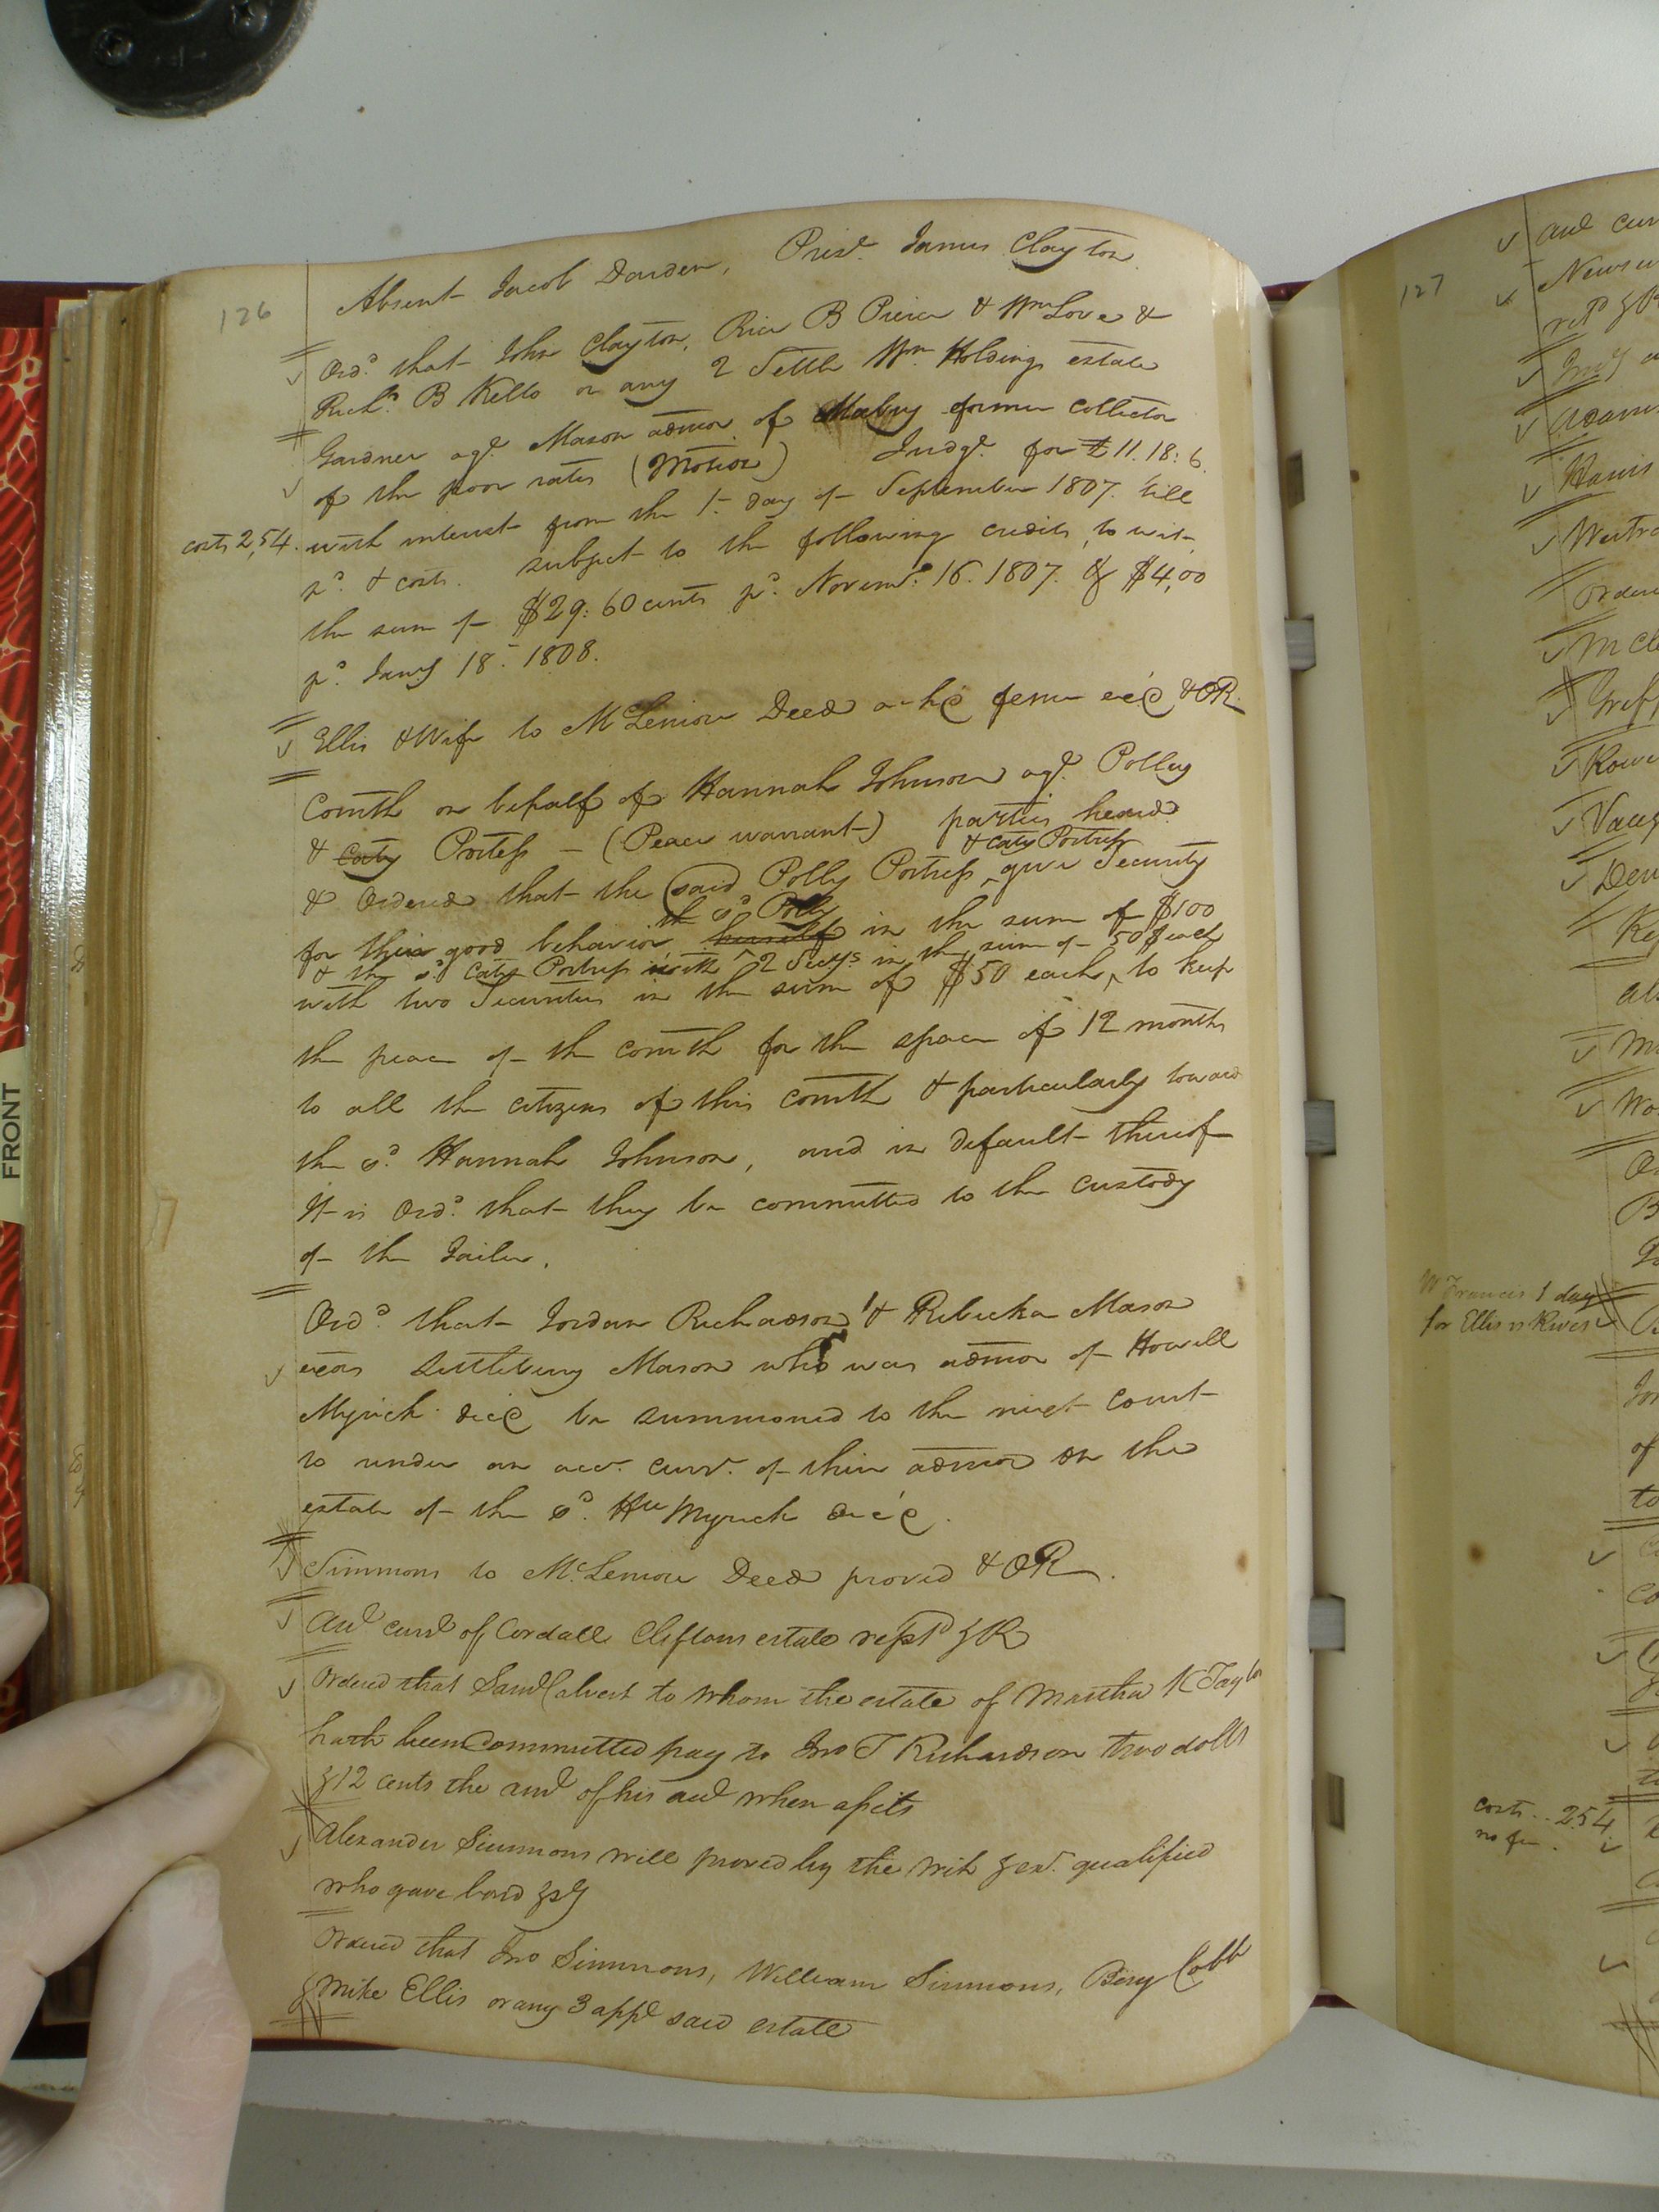 126
Absent Jacob Darden, Pres.t James Clayton
Ord.d that John Clayton, Rice B Pierce & Wm Love &
Rich.d B Kello or any 2 Settle Wm Holdings estate
Gardner ag.t Mason admor. of Mabry former Collector
of the poor rates (Motion) Judg.t for £11.18.6.
costs 2,54. with interest from the 1.st day of September 1807. till
p.d & costs. subject to the following credits, to wit,
the sum of $29.60 cents p.d Novem.r 16. 1807. & $4,00
p.d Jan.y 18.th 1808.
Ellis & Wife to McLemore Deed feme & OR.
Comth on behalf of Hannah Johnson ag.t Polley
& Caty Portess – (Peace warrant) parties heard
& Caty Portress
& Ordered that the (said Polly Portress ^ give Security
the s.d Polly
for their good behavior herself in the sum of $100
& the s.d Caty Portress with 2 Secys in the sum of 50$ each
with two Securities in the sum of $50 each ^ to keep
the peace of the comth for the space of 12 months
to all the citizens of this comth & particularly toward
the s.d Hannah Johnson, and in default thereof
It is Ord.d that they be committed to the custody
of the Jailer.
Ord.d that Jordan Richardson & Rebecka Mason
exors Littlebury Mason who was admor of Howell
Myrick dec.d be summoned to the next Court
to render an acc.t curr.t of their admon on the
estate of the s.d Hll Myrick dec.d.
Simmons to McLemore Deed proved & OR.
Acct curt of Cordall Cliftons estate rept.d & R
Ordered that Saml Calvert to whom the estate of Martha K Taylor
hath been Committed pay to Jno T Richardson two dolls
& 12 cents the amt of his acct when assets
Alexander Simmons will proved by the wit & exr. qualified
who gave bond & sy
Ordered that Jno Simmons, William Simmons, Berry Cobb
& Mike Ellis or any 3 appr said estate
127
and cur
Newsu
Harris
Westra
Ordere
McCle
Griff
W Francis 1 day
for Ellis vs Rives
of
to
costs .. 2.54